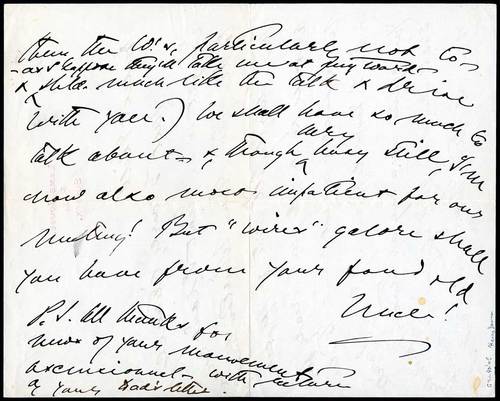 them, the W's, particularly not to
- as I suppose they'll take me at my word -
& shld. much like the talk & drive
with you.) We shall have so much to
talk about - & though very busy still, I'm
now also most impatient for our
meeting! But "wires" galore shall
you have from your fond old
Uncle!
P.S. All thanks for
news of your movements
with
of your Dad's letter.